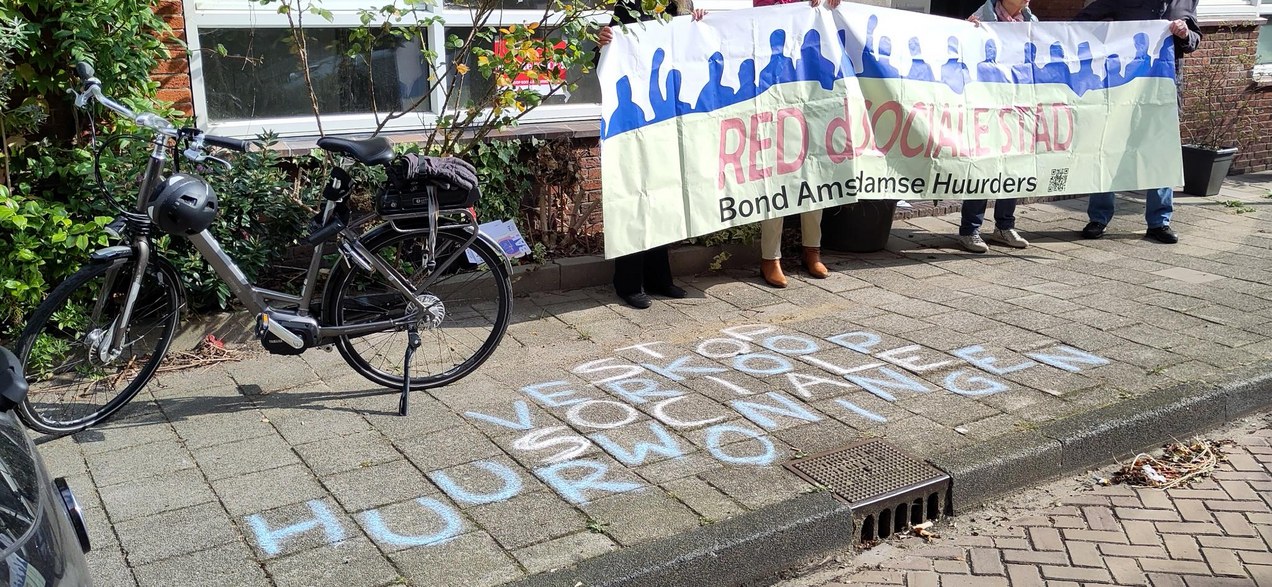 RED d SOCIALE STAD
Bond Amsdamse Huurders
STOP
VERKOOP
SOCIALE
HUURWONINGEN